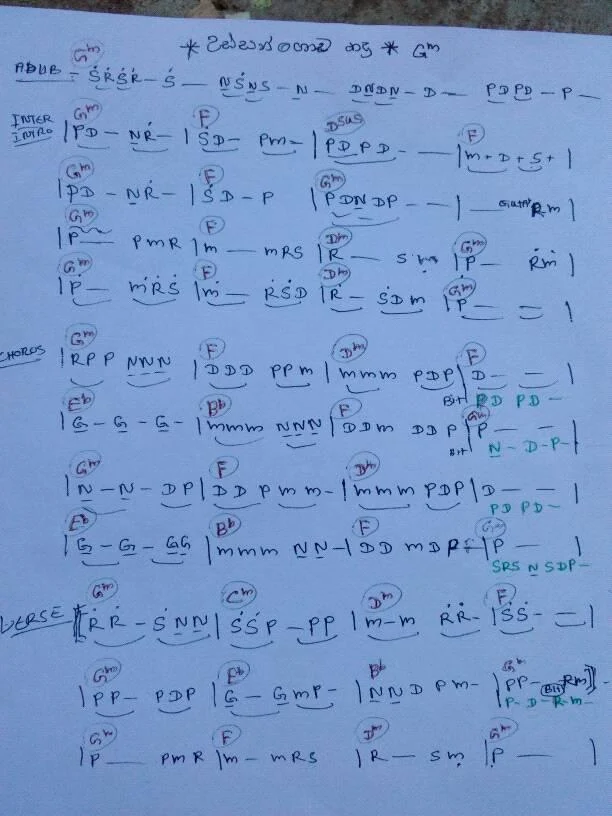 * * Gm
Gm
ADLIB - ṠṘṠṘ - Ṡ — NṠNS - N — DNDN - D — PDPD - P —
INTER INTRO
Gm F Dsus F
| PD - NṘ - | ṠD - Pm - | PDPD - — | m + D + S + |
Gm F Gm
| PD - NṘ - | ṠD - P | PDNDP - - | — Rm |
Gm F Dm Gm
| P — PmR | m — mRS | R — Sm | P — Ṙṁ |
Gm F Dm Gm
| Ṗ — ṁṘṠ | ṁ — ṘṠD | Ṙ — ṠDm | P — = |
CHORUS
Gm F Dm F
| RPP NNN | DDD PPm | mmm PDP | D — — |
Bit PD PD -
Eb Bb F Gm
| G - G - G - | mmm NNN | DDm DDP | P — — |
Bit N - D - P -
Gm F Dm
| N - N - DP | DDPmm - | mmm PDP | D — — |
PD PD -
Eb Bb F Gm
| G - G - GG | mmm NN - | DD mDP | P — |
SRS N SDP -
Gm Cm Dm F
VERSE [ ṘṘ - ṠNN | ṠṠP - PP | m - m ṘṘ - | ṠṠ - = |
Gm Eb Bb Gm
| PP - PDP | G - GmP - | NND Pm - | PP - Rm ] -
Bit P - D - R - m -
Gm F Dm Gm
| P — PmR | m - mRS | R — Sm | P — |